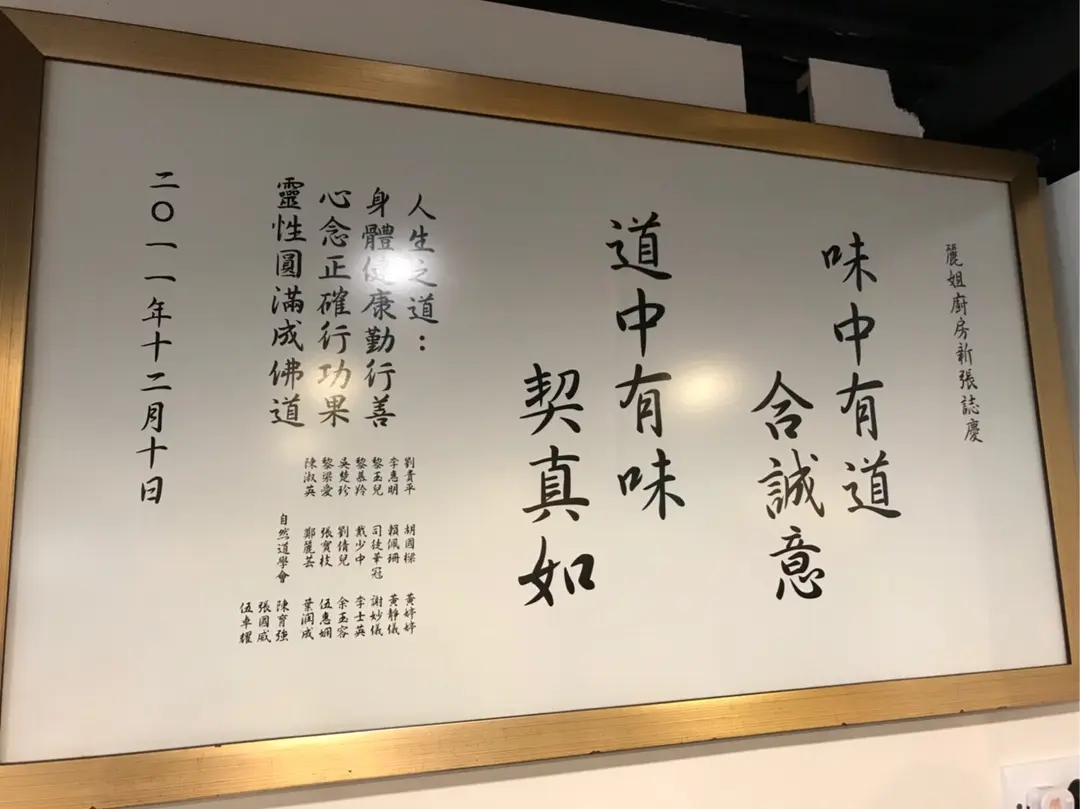 麗姐廚房新張誌慶
味中有道
含誠意
道中有味
契真如
人生之道：
身體健康勤行善
心念正確行功果
靈性圓滿成佛道
劉貴平 胡國樑 黃婷婷
李惠明 賴佩珊 黃靜儀
黎玉兒 司徒華冠 謝妙儀
黎慕羚 戴少中 李士英
吳楚珍 劉倩兒 余玉容
黎梁愛 張寶枝 伍惠嫻
陳淑英 鄭麗芸 葉润成
自然道學會 陳育強
張國威
伍卓耀
二〇一一年十二月十日